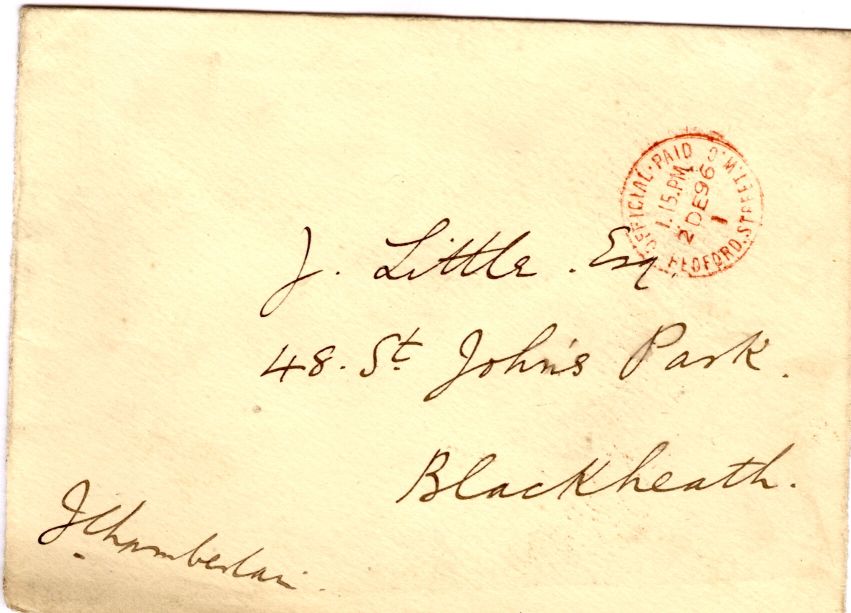 OFFICIAL·PAID
BEDFORD.STREET.W.C
1.15.PM
2 DE 96
1
J. Little. Esq.
48. St. John's Park.
Blackheath.
JChamberlain